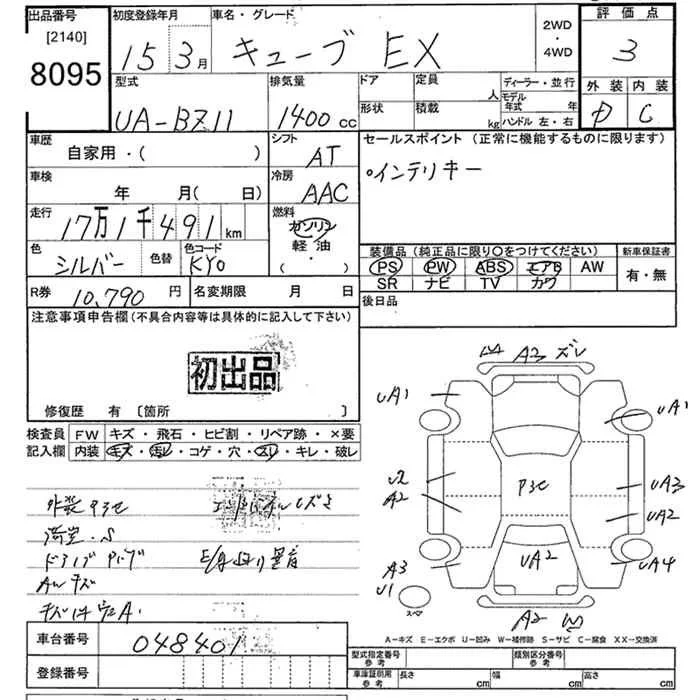 出品番号 初度登録年月 車名・グレード 評価点
[2140]
8095
15 3月 キューブ EX 2WD・4WD 3
型式 排気量 ドア 定員 人 ディーラー・並行 外装 内装
UA-BZ11 1400cc 形状 積載 kg モデル年式 年 ハンドル 左・右 D C
車歴 シフト セールスポイント (正常に機能するものに限ります)
自家用・( ) AT
車検 冷房 インテリキー
年 月( 日) AAC
走行 燃料
17万1千491km ガソリン
色 色替 色コード 軽油 装備品 (純正品に限り○をつけてください) 新車保証書
シルバー KY0 ・( ) PS PW ABS エアB AW 有・無
SR ナビ TV カワ
R券 10,790円 名変期限 月 日 後日品
注意事項申告欄(不具合内容等は具体的に記入して下さい)
初出品
修復歴 有 [箇所 ]
検査員 FW キズ・飛石・ヒビ割・リペア跡・×要
記入欄 内装 キズ・汚レ・コゲ・穴・スレ・キレ・破レ
A3 ズレ
UA1
UA1
P3セ
U2
A2
UA3
UA2
UA2
A3
U1
UA4
スペア
A2 W
AWキズ
車台番号 048401
登録番号
A-キズ E-エクボ U-凹み W-補修跡 S-サビ C-腐食 XX-交換済
型式指定番号 参考 類別区分番号 参考
車庫証明用 参考 長さ cm 幅 cm 高さ cm